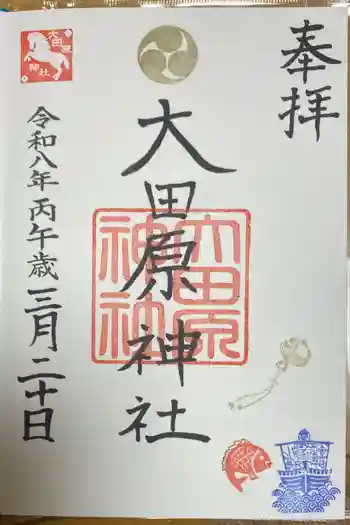 奉拝
大田原神社
大田原
神社
令和八年丙午歳三月二十日
大田原
神社